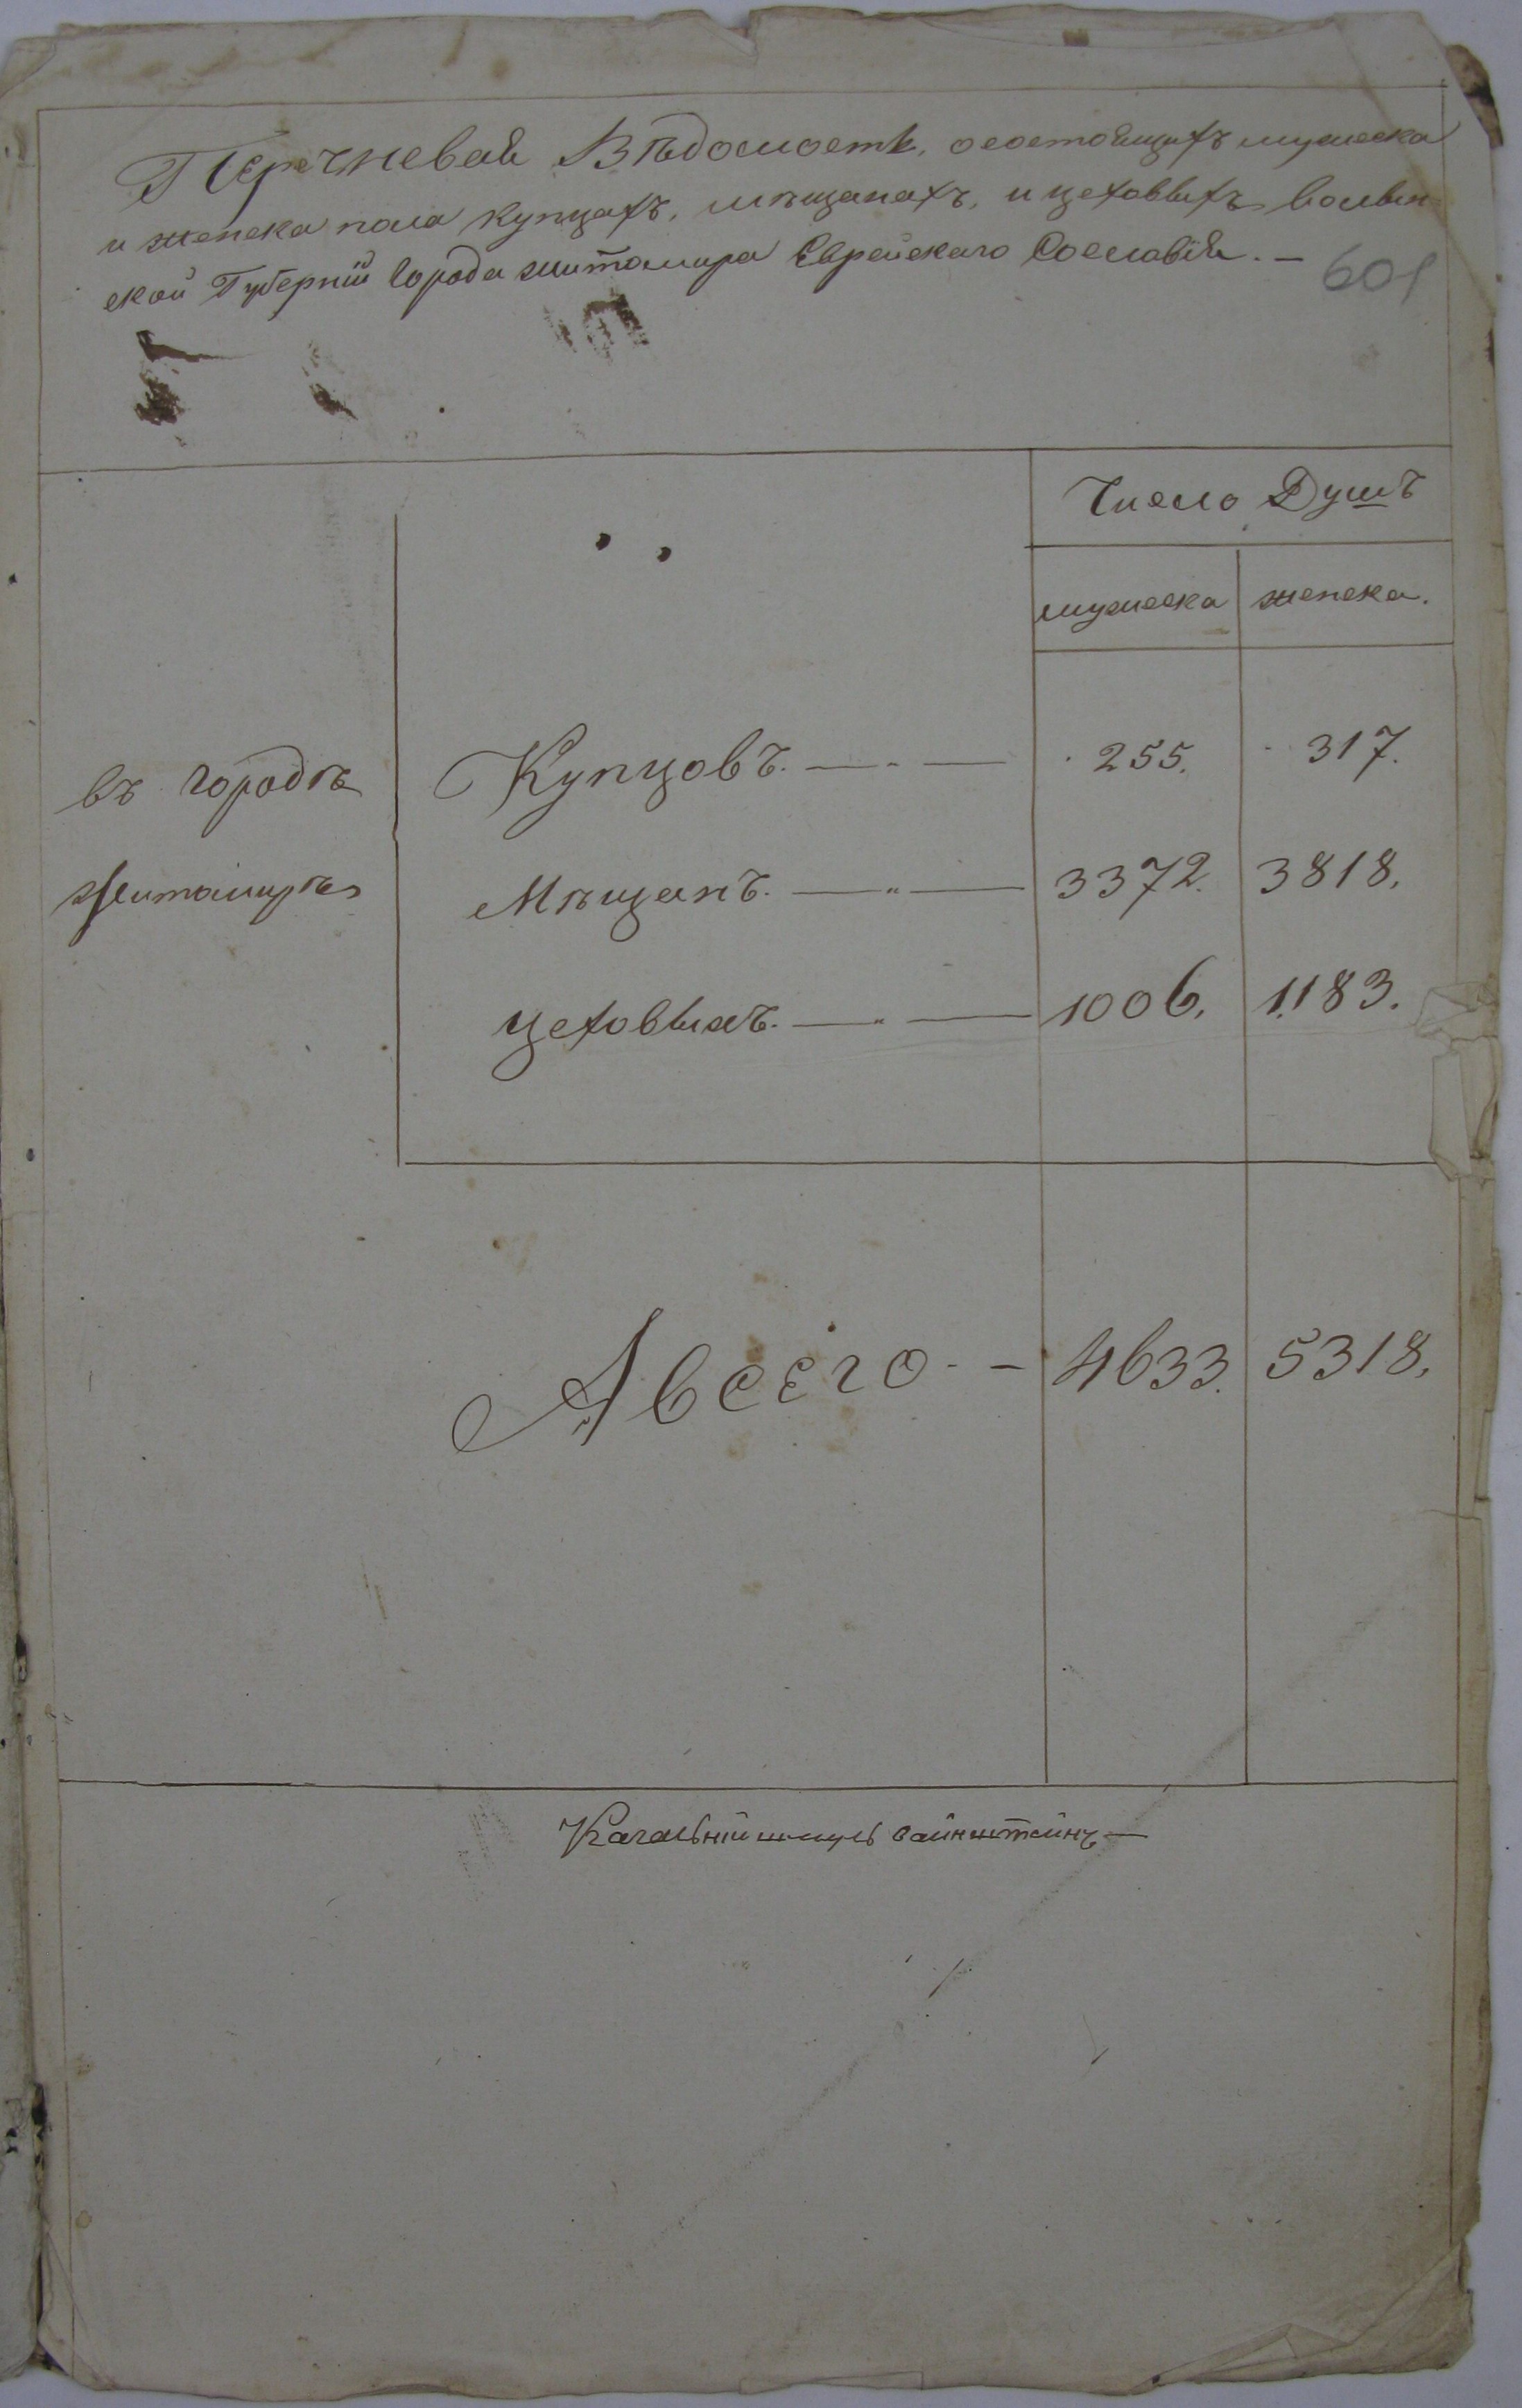 Перечневая Вѣдомость, осостоящихъ мужеска
и женска пола купцахъ, мѣщанахъ, и цеховыхъ волын-
ской Губерніи Города житомира Еврейскаго Сословія. —
601
Число Душъ
мужеска женска.
въ городѣ Купцовъ. — „ — 255. 317.
Житомирѣ Мѣщанъ. — „ — 3372. 3818.
цеховыхъ. — „ — 1006. 1183.
А всего - — 4633. 5318.
Кагальній шмуль вайнштейнъ —